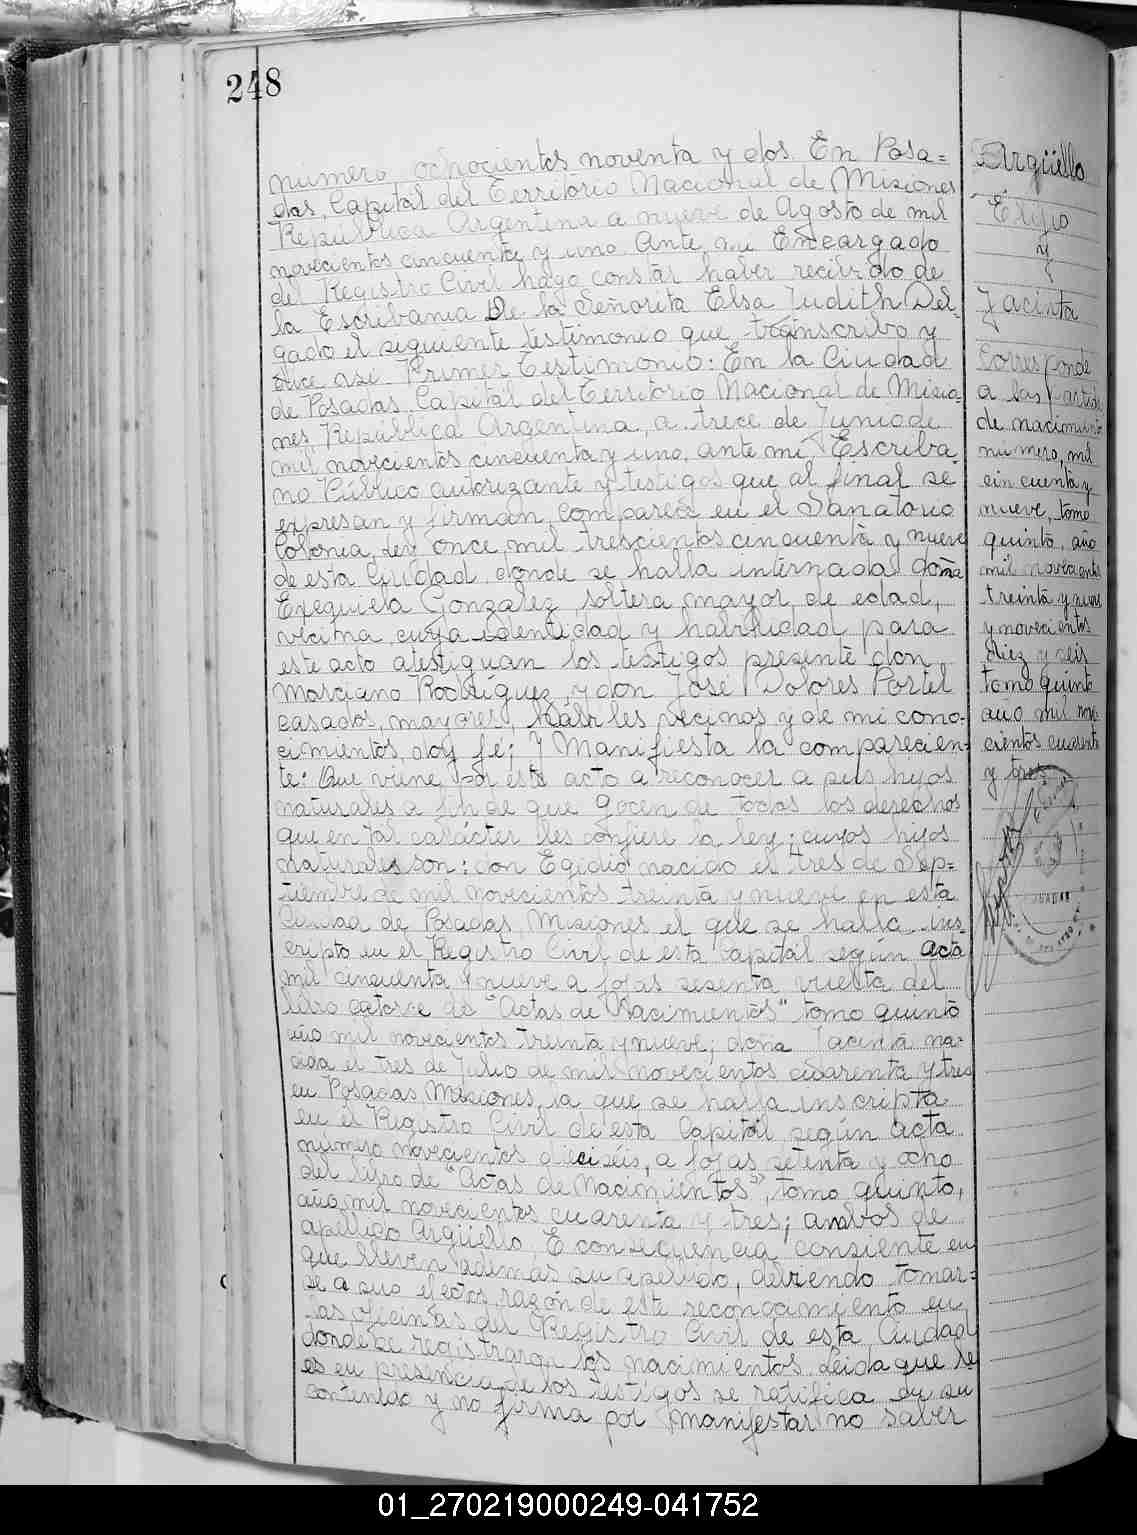 248
numero ochocientos noventa y dos. En Posa=
das, Capital del Territorio Nacional de Misiones
República Argentina a nueve de Agosto de mil
novecientos cincuenta y uno. Ante mi Encargado
del Registro Civil hago constar haber recibido de
la Escribania De la Señorita Elsa Judith Del-
gado el siguiente testimonio que transcribo y
dice asi. Primer Testimonio: En la Ciudad
de Posadas, Capital del Territorio Nacional de Misio-
nes, República Argentina a trece de Junio de
mil novecientos cincuenta y uno, ante mi, Escriba
no Público autorizante y testigos que al final se
expresan y firman, comparece en el Sanatorio
Colonia, Ley once mil trescientos cincuenta y nueve
de esta Ciudad, donde se halla internada doña
Exequiela Gonzalez, soltera, mayor de edad,
vecina cuya identidad y habilidad para
este acto atestiguan los testigos presente don
Marciano Rodríguez y don José Dolores Portel
casados, mayores, hábiles vecinos y de mi cono-
cimientos, doy fe; Y Manifiesta la comparecien-
te: Que viene por este acto a reconocer a sus hijos
naturales a fin de que gocen de todos los derechos
que en tal carácter les confiere la ley; cuyos hijos
naturales son: don Egidio nacido el tres de Sep=
tiembre de mil novecientos treinta y nueve en esta
Ciudad de Posadas, Misiones el que se halla ins-
cripto en el Registro Civil de esta Capital según acta
mil cincuenta y nueve a fojas sesenta vuelta del
libro catorce de "Actas de Nacimientos" tomo quinto
año mil novecientos treinta y nueve; doña Jacinta na-
cida el tres de Julio de mil novecientos cuarenta y tres
en Posadas, Misiones, la que se halla inscripta
en el Registro Civil de esta Capital según acta
número novecientos dieciséis, a fojas setenta y ocho
del libro de "Actas de Nacimientos", tomo quinto,
año mil novecientos cuarenta y tres; ambos de
apellido Argüello, E consecuencia consiente en
que lleven además su apellido, debiendo tomar=
se a sus efectos razón de este reconocimiento en
las oficinas del Registro Civil de esta Ciudad
donde se registraron los nacimientos. Leida que le
es en presencia de los testigos se ratifica en su
contenido y no firma por manifestar no saber
Argüello
Elijio
y
Jacinta
Corresponde
a las partidas
de nacimiento
número, mil
cincuenta y
nueve, tomo
quinto, año
mil novecientos
treinta y nueve
y novecientos
diez y seis
tomo quinto
año mil nove
cientos cuarenta
y tres
01_270219000249-041752